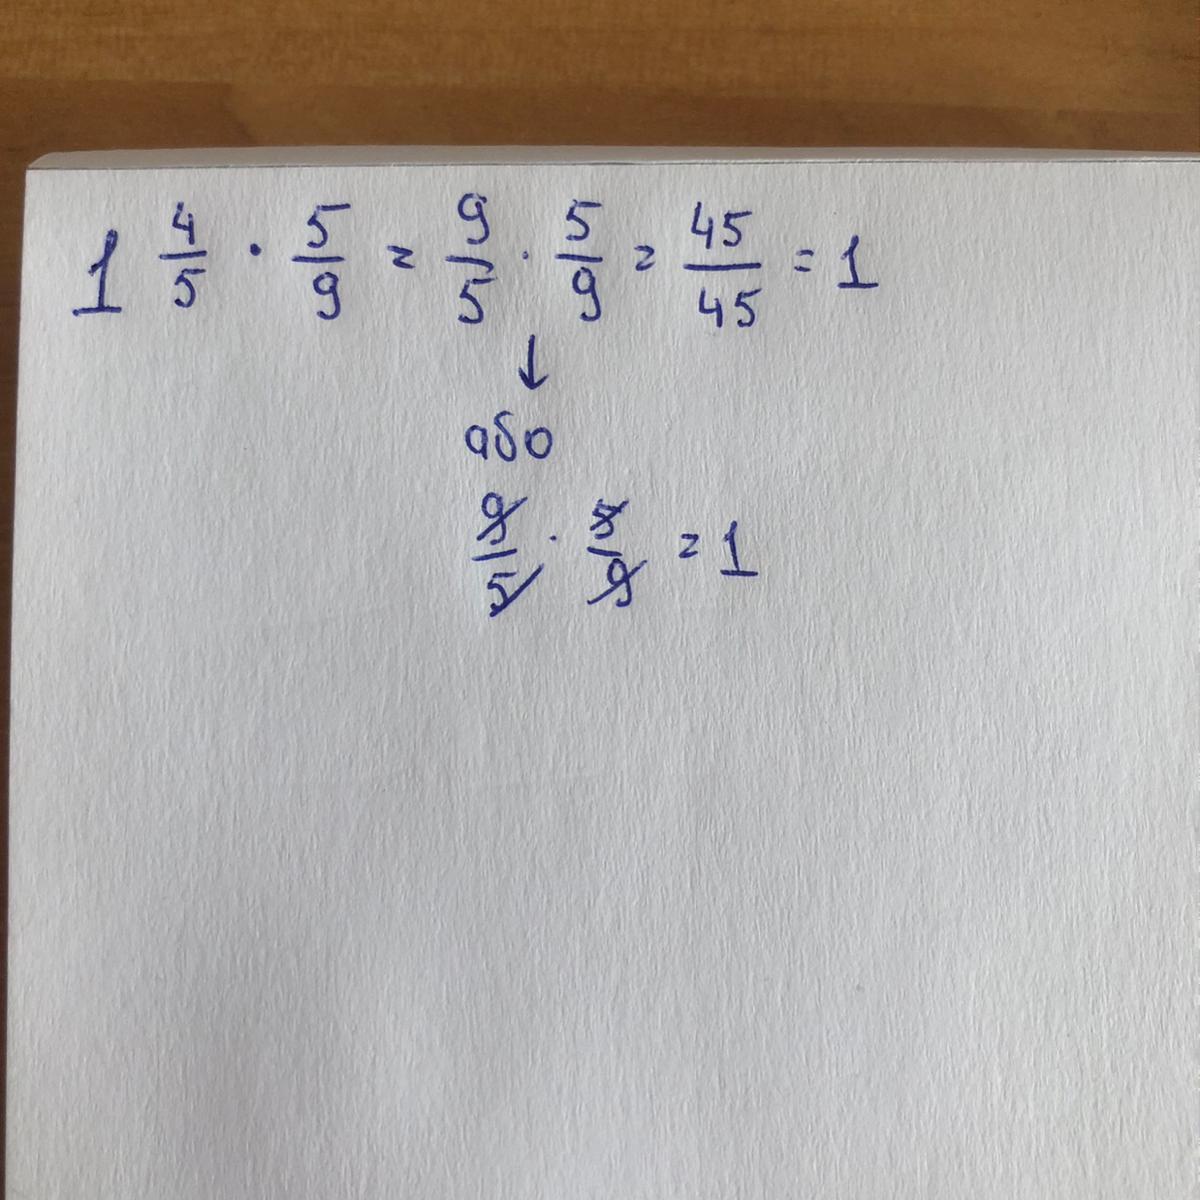 1 4/5 · 5/9 = 9/5 · 5/9 = 45/45 = 1
↓
або
9/5 · 5/9 = 1